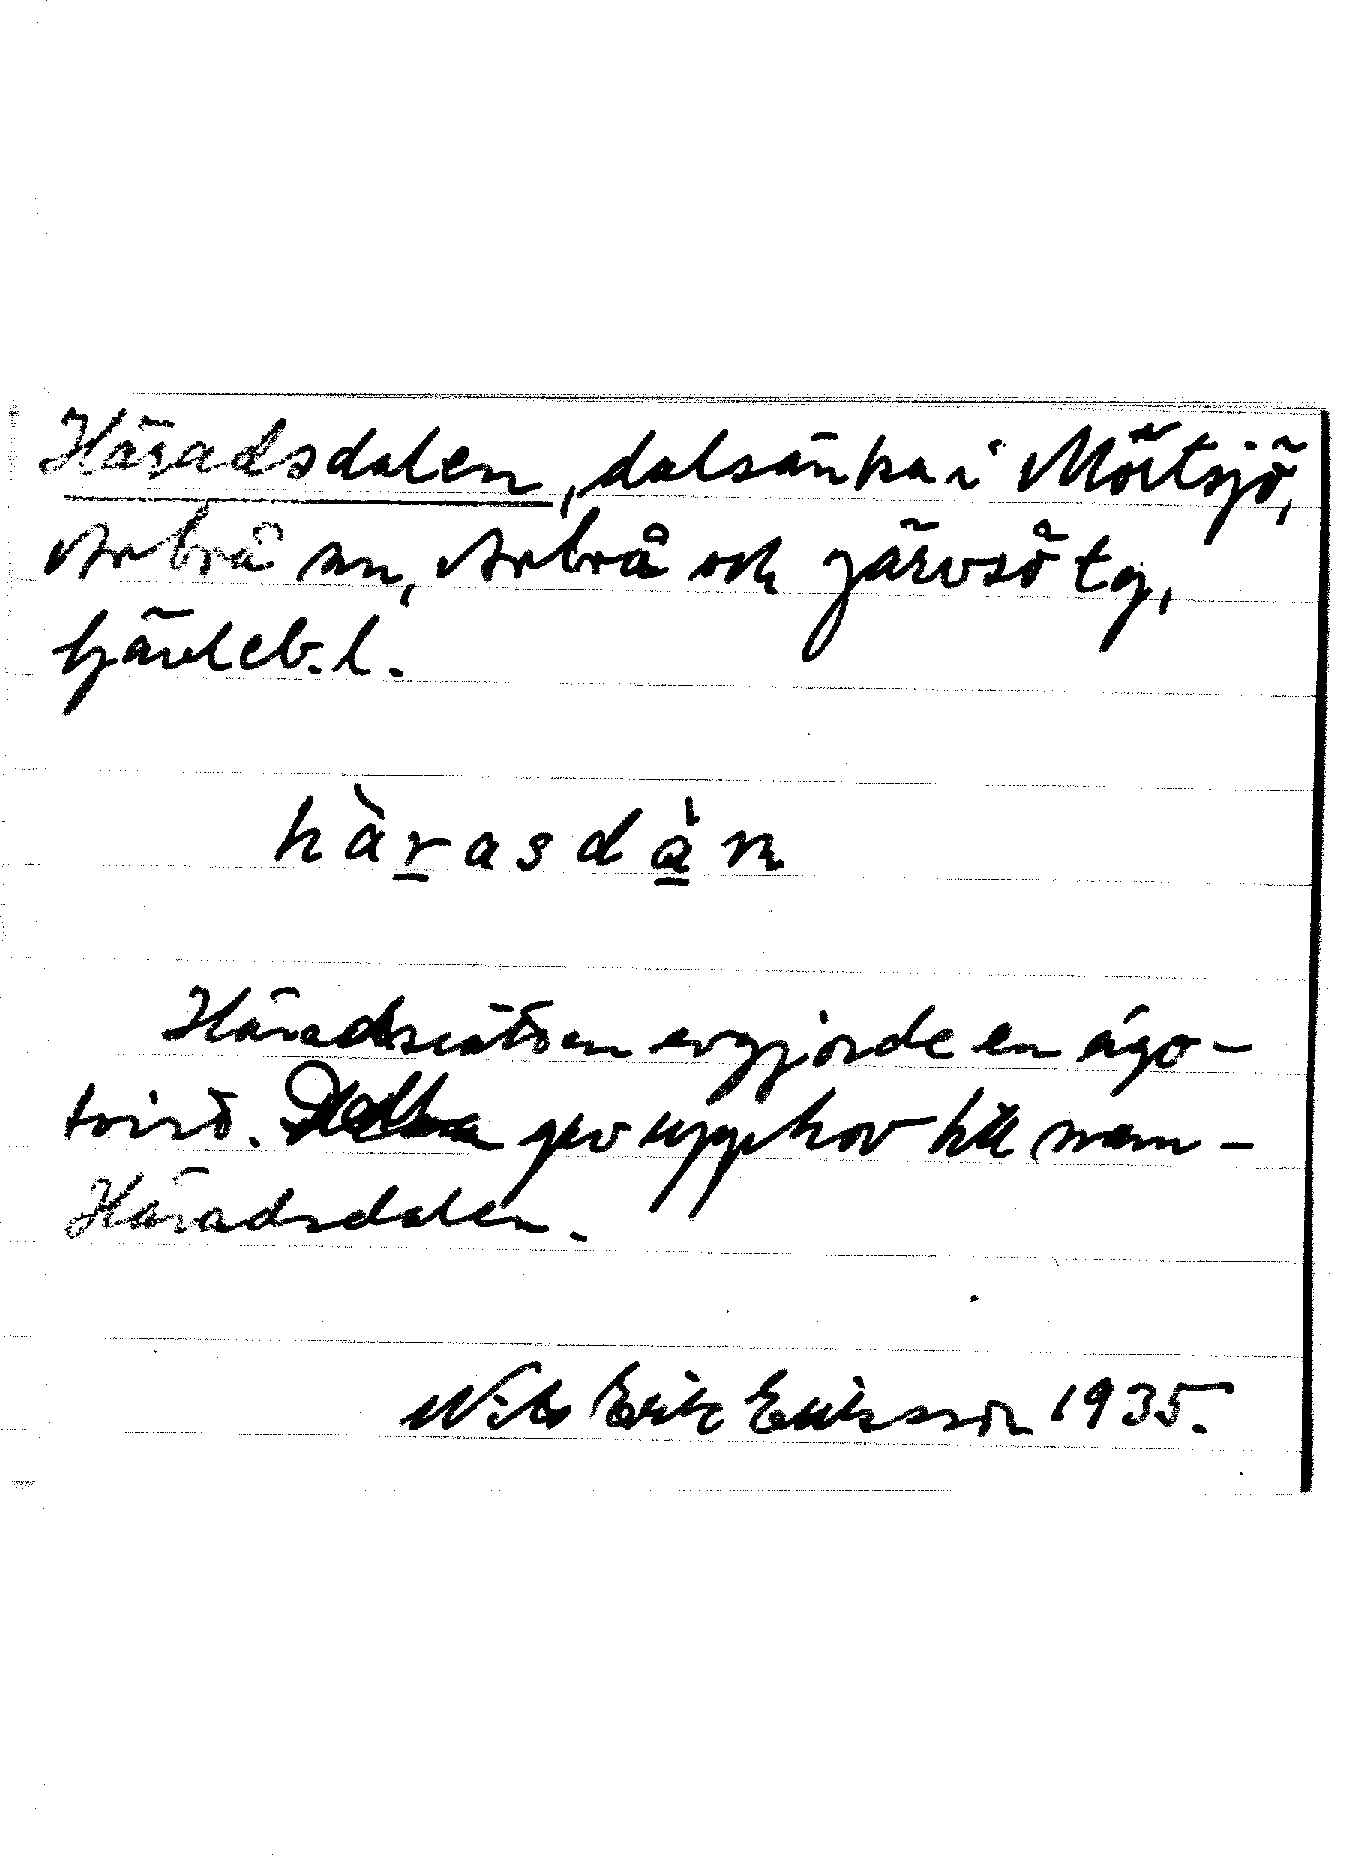 Häradsdalen, dalsänka i Mörtsjö,
Arbrå sn, Arbrå och Järvsö tg,
Gävleb. l.
hàrasdàn
Häradsrätten avgjorde en ägo-
tvist. Detta gav upphov till namn-
Häradsdalen.
Nils Erik Eriksson 1935.